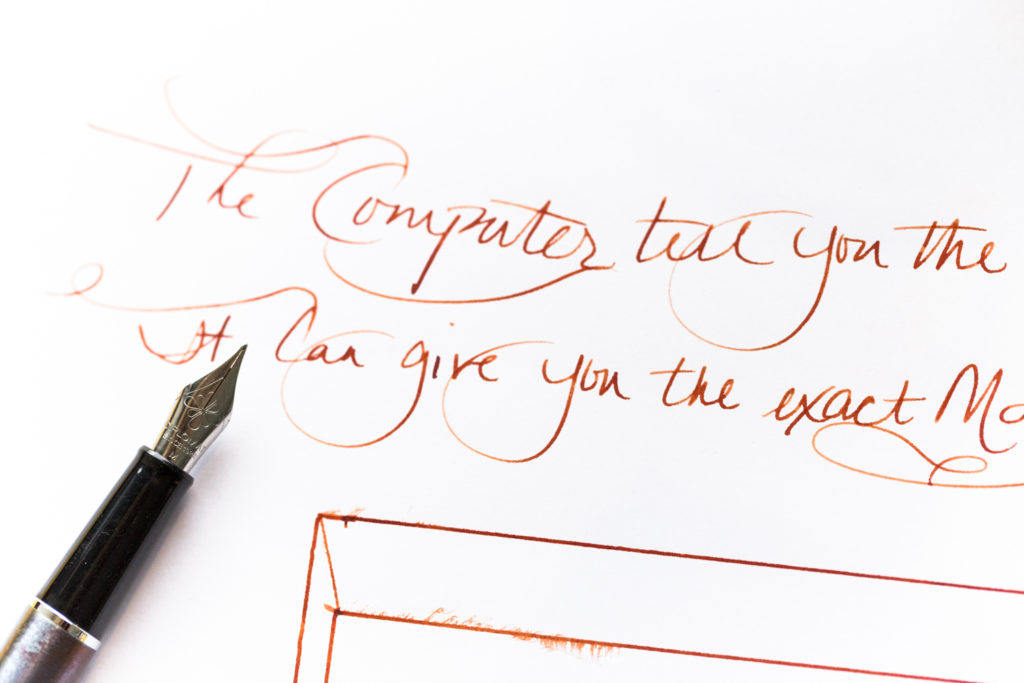 The Computer tell you the
It Can give you the exact Ma